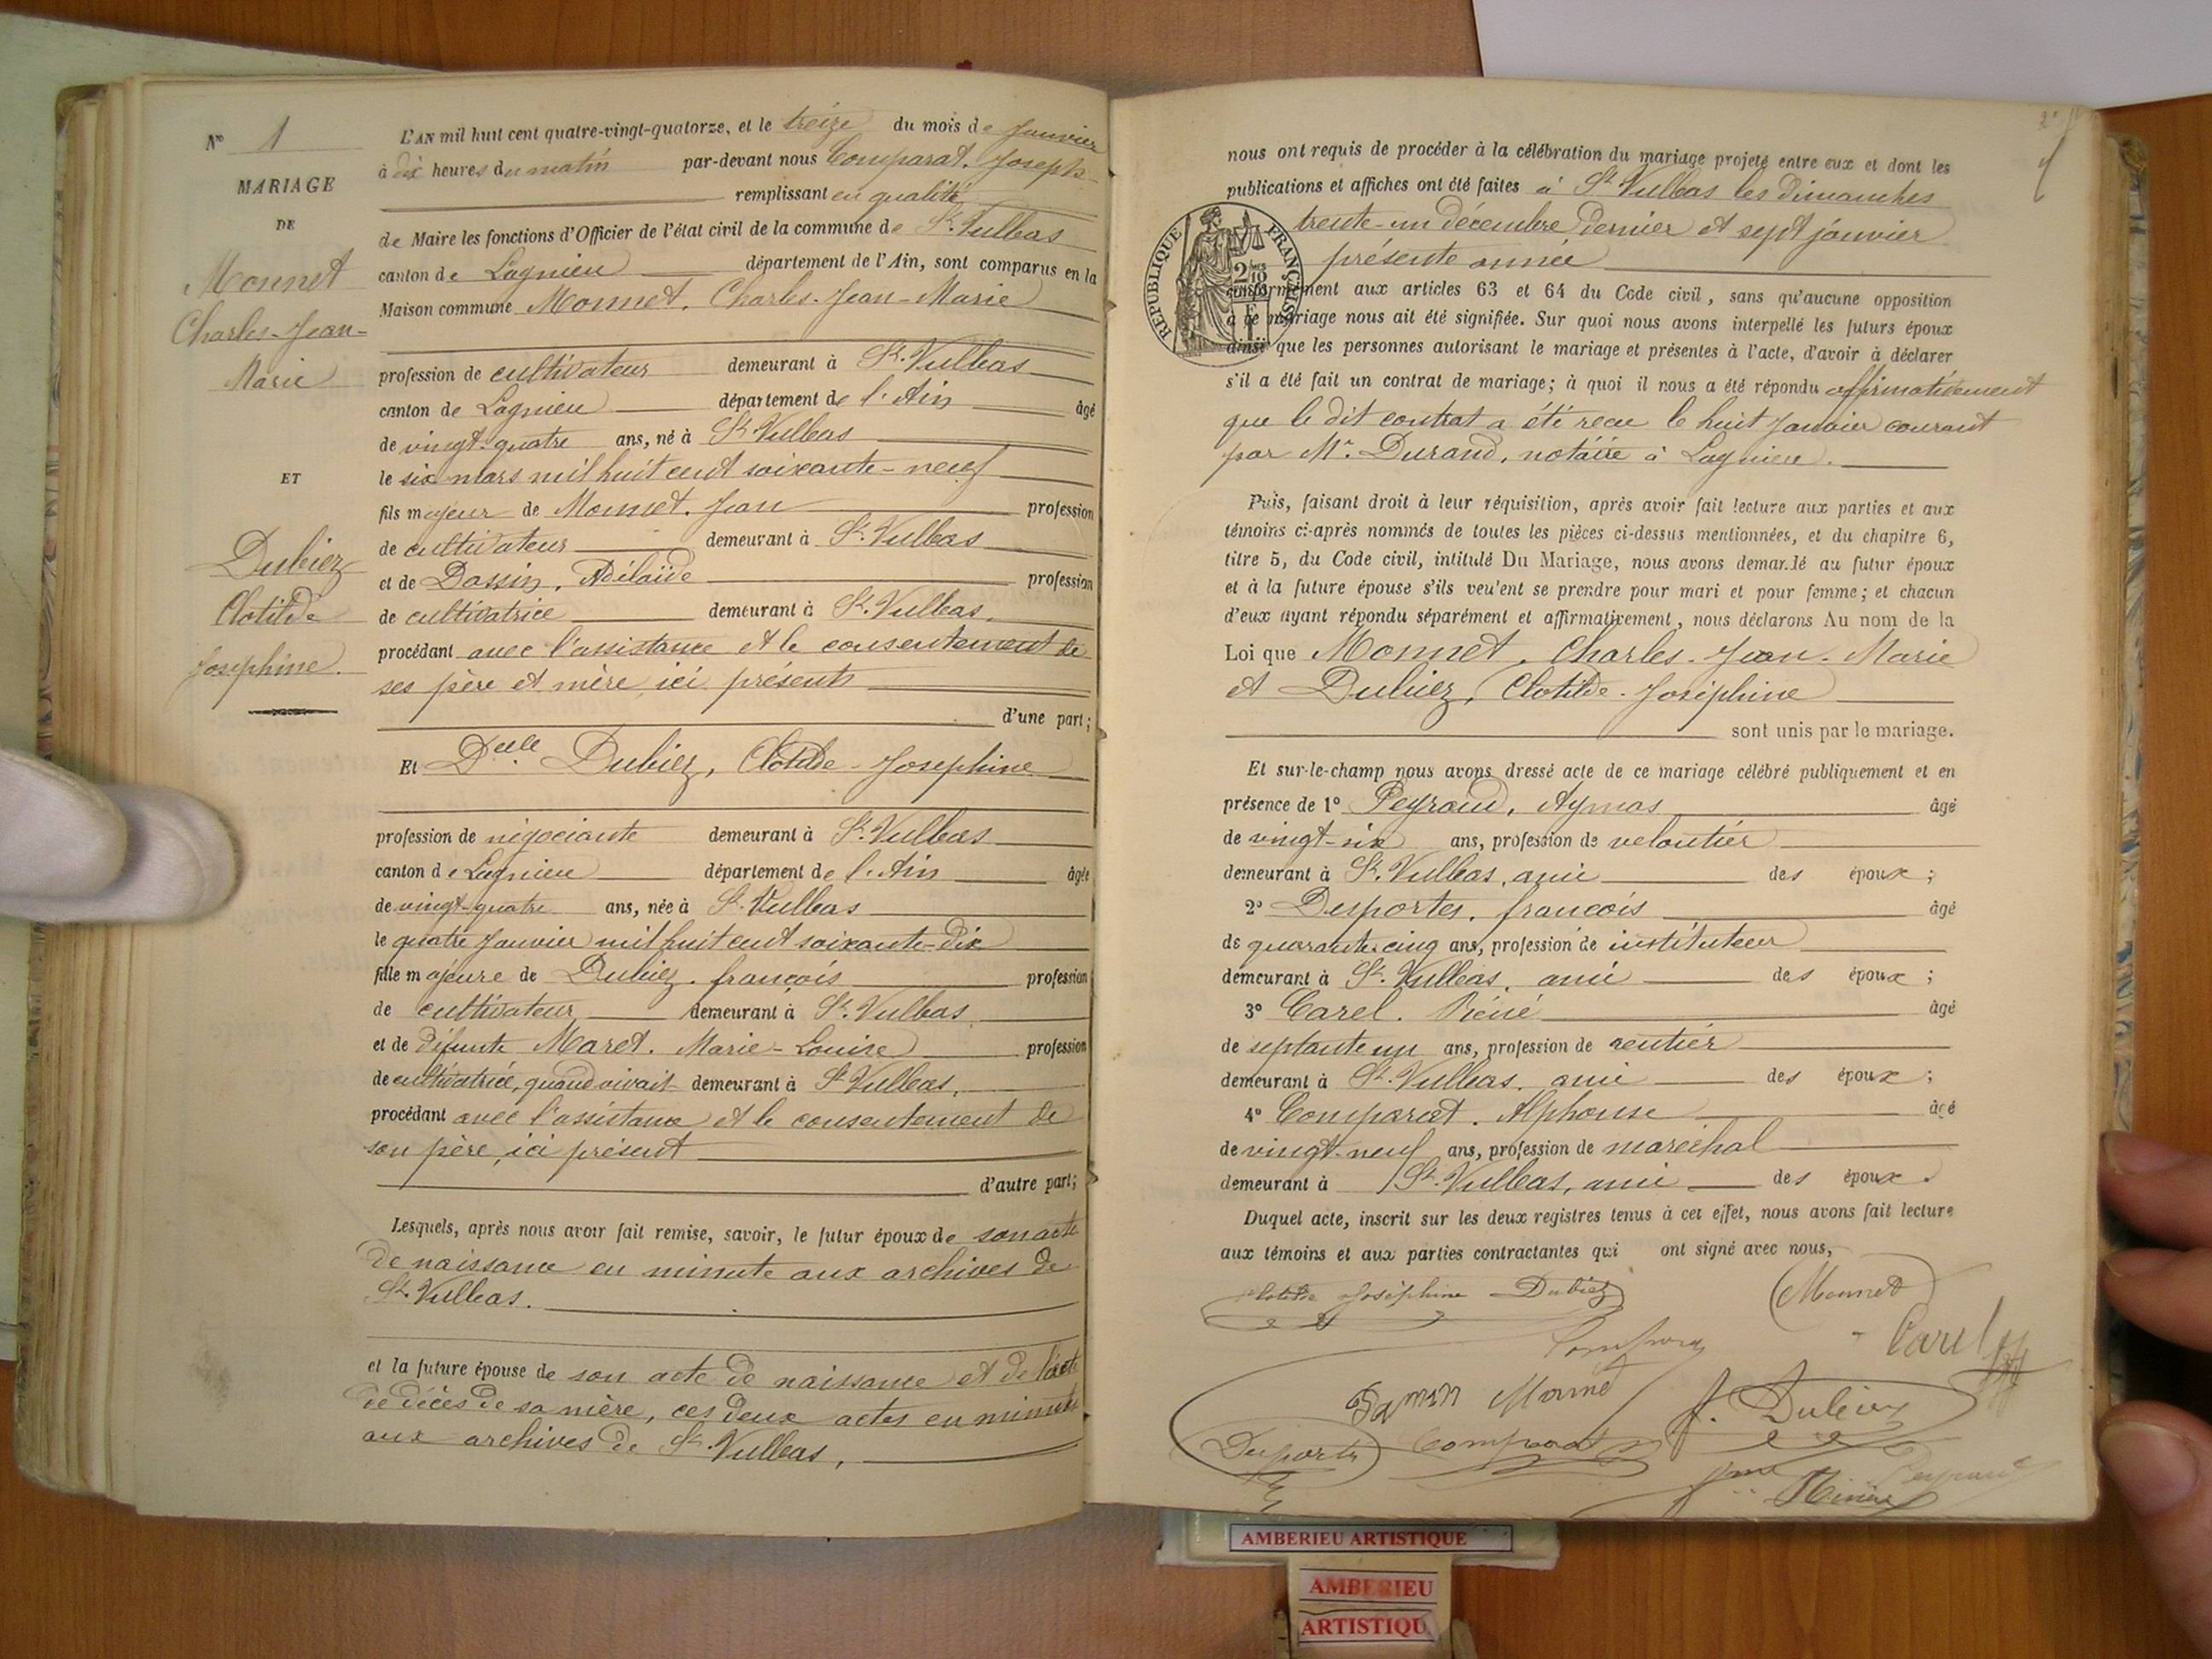 Nº 1
MARIAGE
DE
Monnet
Charles-Jean-
Marie
ET
Dubiez
Clotilde
Joséphine.
L'AN mil huit cent quatre-vingt-quatorze, et le treize du mois de Janvier
à dix heures du matin par-devant nous Comparat, Joseph
remplissant en qualité
de Maire les fonctions d'Officier de l'état civil de la commune de St. Vulbas
canton de Lagnieu département de l'Ain, sont comparus en la
Maison commune Monnet, Charles-Jean-Marie
profession de cultivateur demeurant à St. Vulbas
canton de Lagnieu département de l'Ain âgé
de vingt-quatre ans, né à St Vulbas
le six mars mil huit cent soixante-neuf
fils majeur de Monnet, Jean profession
de cultivateur demeurant à St. Vulbas
et de Dassin, Adélaïde profession
de cultivatrice demeurant à St. Vulbas,
procédant avec l'assistance et le consentement de
ses père et mère, ici présents
d'une part;
Et Delle Dubiez, Clotilde-Joséphine
profession de négociante demeurant à St. Vulbas
canton de Lagnieu département de l'Ain âgée
de vingt-quatre ans, née à St. Vulbas
le quatre Janvier mil huit cent soixante-dix
fille majeure de Dubiez, françois profession
de cultivateur demeurant à St. Vulbas
et de défunte Maret, Marie-Louise profession
de cultivatrice, quand vivait demeurant à St Vulbas,
procédant avec l'assistance et le consentement de
son père, ici présent
d'autre part;
Lesquels, après nous avoir fait remise, savoir, le futur époux de son acte
de naissance en minute aux archives de
St. Vulbas.
et la future épouse de son acte de naissance et de l'acte
de décès de sa mère, ces deux actes en minute
aux archives de St. Vulbas,
nous ont requis de procéder à la célébration du mariage projeté entre eux et dont les
publications et affiches ont été faites à St. Vulbas les dimanches
trente-un décembre dernier et sept janvier
présente année
RÉPUBLIQUE FRANÇAISE
conformément aux articles 63 et 64 du Code civil, sans qu'aucune opposition
à ce mariage nous ait été signifiée. Sur quoi nous avons interpellé les futurs époux
ainsi que les personnes autorisant le mariage et présentes à l'acte, d'avoir à déclarer
s'il a été fait un contrat de mariage; à quoi il nous a été répondu affirmativement
que le dit contrat a été reçu le huit Janvier courant
par Mr. Durand, notaire à Lagnieu.
Puis, faisant droit à leur réquisition, après avoir fait lecture aux parties et aux
témoins ci-après nommés de toutes les pièces ci-dessus mentionnées, et du chapitre 6,
titre 5, du Code civil, intitulé Du Mariage, nous avons demandé au futur époux
et à la future épouse s'ils veulent se prendre pour mari et pour femme; et chacun
d'eux ayant répondu séparément et affirmativement, nous déclarons Au nom de la
Loi que Monnet, Charles-Jean-Marie
et Dubiez, Clotilde-Joséphine
sont unis par le mariage.
Et sur-le-champ nous avons dressé acte de ce mariage célébré publiquement et en
présence de 1º Peyraud, Aymas âgé
de vingt-six ans, profession de veloutier
demeurant à St. Vulbas, ami des époux;
2º Desportes, françois âgé
de quarante-cinq ans, profession de instituteur
demeurant à St. Vulbas, ami des époux;
3º Carel, Réné âgé
de septante un ans, profession de rentier
demeurant à St. Vulbas, ami des époux;
4º Comparat, Alphonse âgé
de vingt-neuf ans, profession de maréchal
demeurant à St. Vulbas, ami des époux.
Duquel acte, inscrit sur les deux registres tenus à cet effet, nous avons fait lecture
aux témoins et aux parties contractantes qui ont signé avec nous,
Clotilde Joséphine Dubiez Monnet
Carel
Monnet
F. Dubiez
Desportes Comparat
Peyraud
AMBERIEU ARTISTIQUE
AMBERIEU
ARTISTIQU